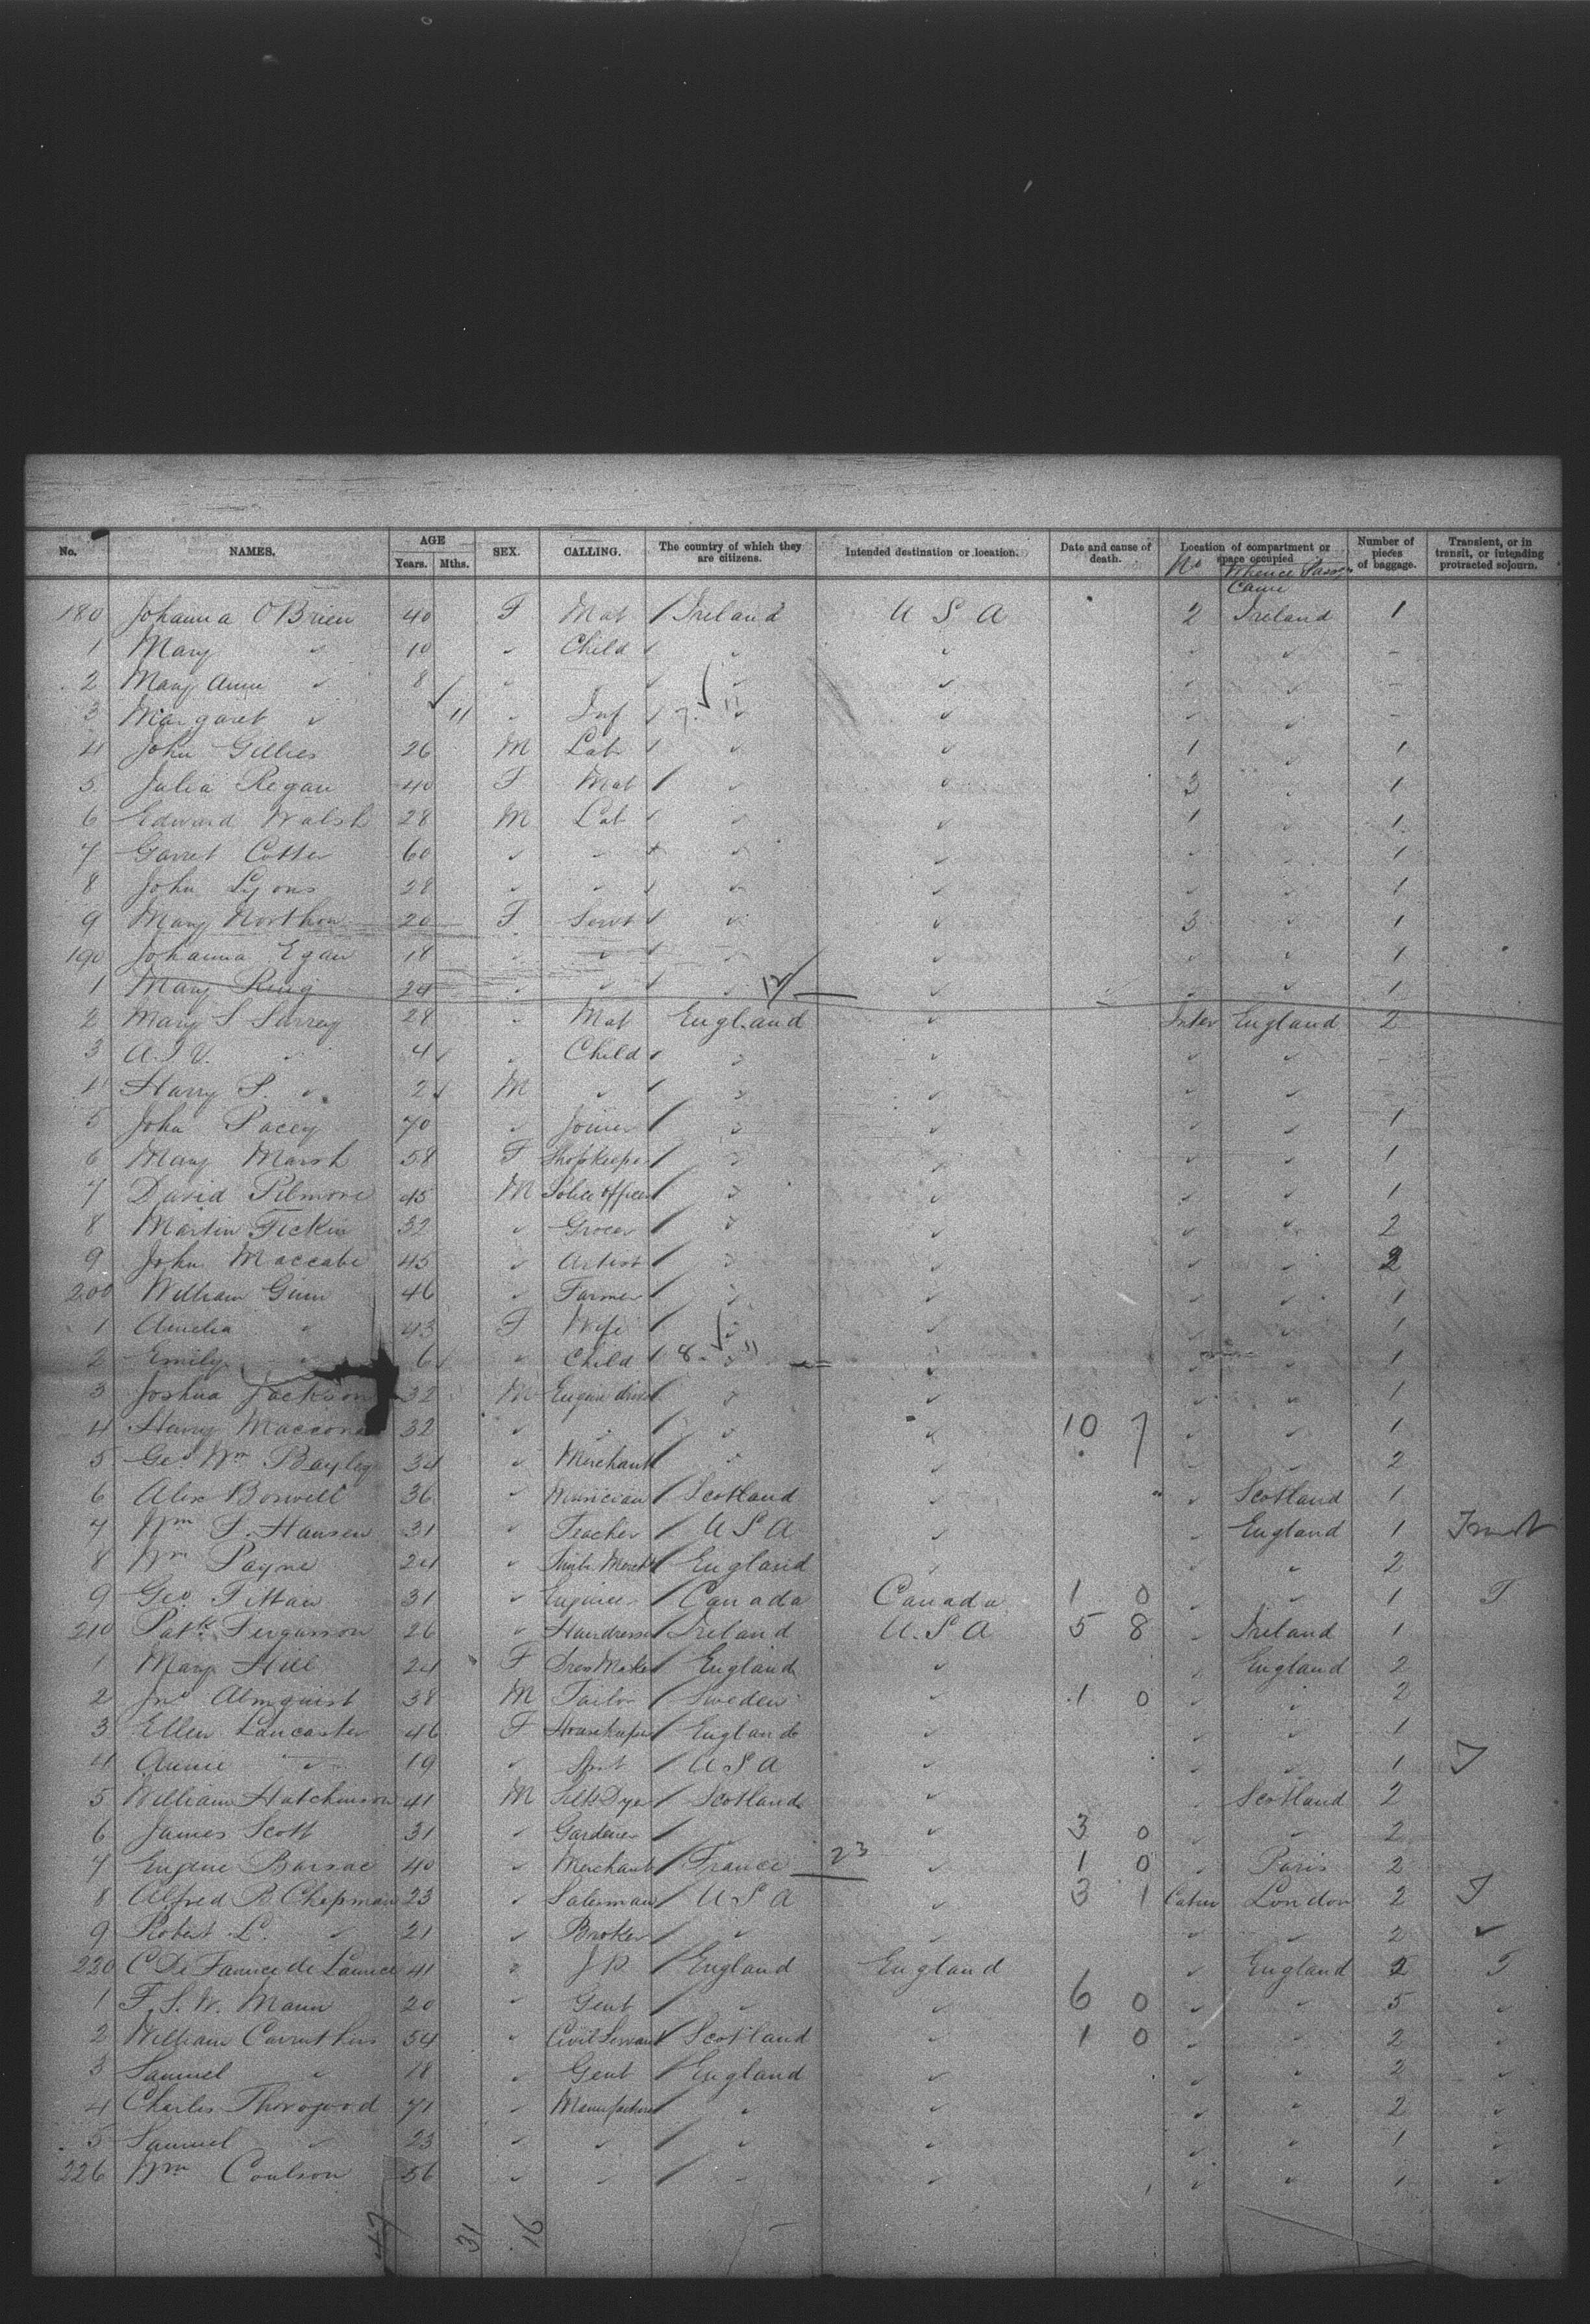 No. NAMES. AGE Years. Mths. SEX. CALLING. The country of which they are citizens. Intended destination or location. Date and cause of death. Location of compartment or space occupied Number of pieces of baggage. Transient, or in transit, or intending protracted sojourn.
No Whence Passr Came
180 Johanna O'Brien 40 F Mat / Ireland U S A 2 Ireland 1
1 Mary " 10 " Child
2 Mary Anne " 8 "
3 Margaret " 11 " Inf 7. 11
4 John Gillies 26 M Lab 1 1
5 Julia Regan 40 F Mat 3 1
6 Edward Walsh 28 M Lab 1 1
7 Garret Cotter 60 " " 1
8 John Lyons 28 " " 1
9 Mary Northon 20 F Servt 3 1
190 Johanna Egan 18 " " 1
1 Mary Ring 24 " " 12 1
2 Mary S Surrey 28 " Mat England " Inter England 2
3 A.I.V. " 4 " Child
4 Harry P. " 2 M "
5 John Pacey 70 " Joiner 1
6 Mary Marsh 58 F Shopkeeper 1
7 David Pilmore 45 M Police Officer 1
8 Martin Fickin 32 " Grocer 2
9 John Maccabe 45 " Artist 2
200 William Ginn 46 " Farmer 1
1 Amelia " 43 F Wife 1
2 Emily " 6 " Child 8. 11 1
3 Joshua Jackson 32 M Engine driver 1
4 Harry 32 " " 10 7 1
5 Geo. Wm Bayley 34 " Merchant 2
6 Alex Boswell 36 " Musician / Scotland " Scotland 1
7 Wm F. Hansen 31 " Teacher / U S A " England 1
8 Wm Payne 24 " / England " 2
9 Geo. Tittaw 31 " Engineer / Canada Canada 1 0 " 1 T
210 Patk Fergusson 26 " Hairdresser / Ireland U.S.A 5 8 " Ireland 1
1 Mary Hill 24 F Dress Maker / England " England 2
2 Jno Almquist 38 M Tailor / Sweden " 1 0 " 2
3 Ellen Lancaster 46 F Housekeeper / England " 1
4 Annie " 19 " Spst / U S A " 1 T
5 William Hutchinson 41 M Silk Dyer / Scotland " Scotland 2
6 James Scott 31 " Gardener / " 3 0 " 2
7 Eugene Barsac 40 " Merchant / France 23 " 1 0 " Paris 2
8 Alfred B. Chapman 23 " Salesman / U S A " 3 1 Cabin London 2 T
9 Robert L. " 21 " Broker / " 2 "
220 C De Faurice de Laurice 41 " J P. / England England " England 2 T
1 F. S. W. Mann 20 " Gent / " " 6 0 " 5 "
2 William Carruthers 54 " Civil Servant / Scotland " 1 0 " 2 "
3 Samuel " 18 " Gent / England " 2 "
4 Charles Thorogood 71 " Manufacturer / " 2 "
5 Samuel " 23 " " / " 1 "
226 Wm Coulson 56 " " / " 1 "
47 31 16